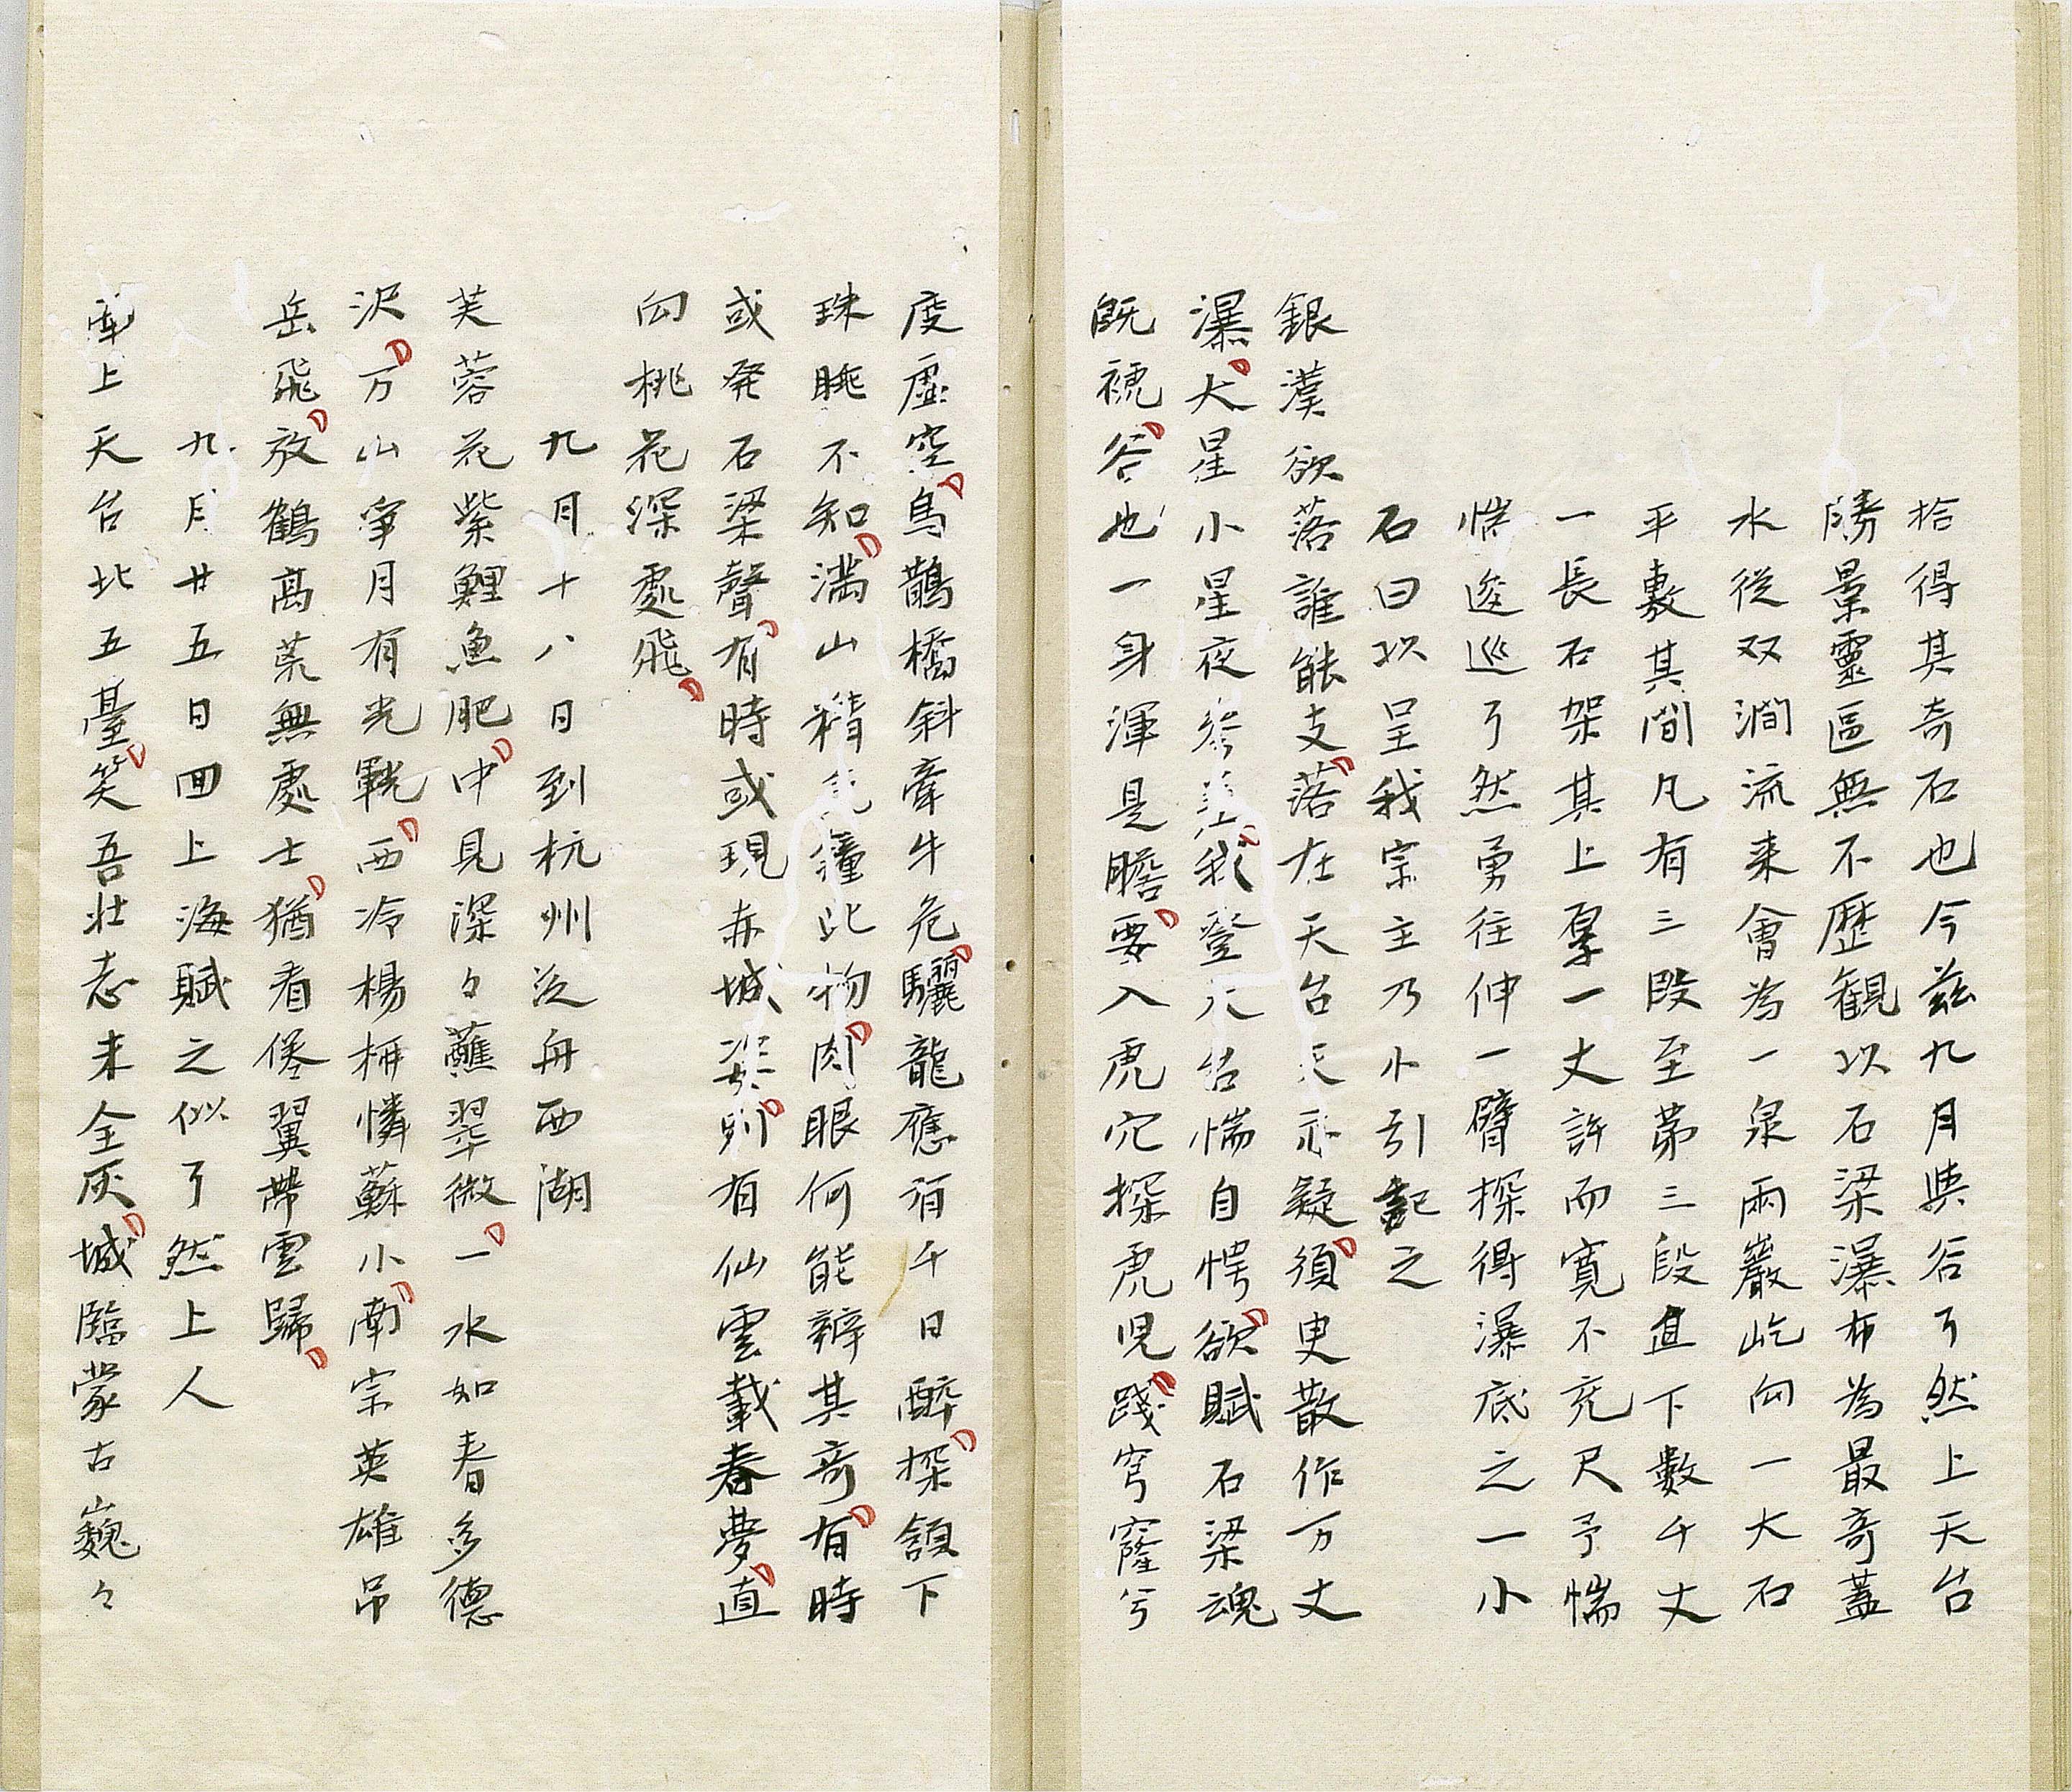 拾得其奇石也今茲九月與谷了然上天台
勝景靈區無不歷観以石梁瀑布為最奇蓋
水從双澗流来會為一泉兩巖屹向一大石
平敷其間凡有三段至第三段直下數千丈
一長石架其上厚一丈許而寛不充尺予惴
惴逡巡了然勇往伸一臂探得瀑底之一小
石曰以呈我宗主乃小引記之
銀漢欲落誰能支落在天台天亦疑須臾散作万丈
瀑大星小星夜参差我登天台惴自愕欲賦石梁魂
既褫谷也一身渾是膽要入虎穴探虎児踐穹窿兮
度虛空烏鵲橋斜牽牛危驪龍應有千日醉探頷下
珠眺不知満山精鍾此物肉眼何能辨其奇有時
或発石梁聲有時或現赤城姿則有仙雲載春夢直
向桃花深處飛
九月十八日到杭州泛舟西湖
芙蓉花紫鯉魚肥中見深々蘸翠微一水如春多德
沢万山寧月有光輝西冷楊柳憐蘇小南宗英雄吊
岳飛放鶴高荒無處士猶看倦翼帶雲歸
九月廿五日回上海賦之似了然上人
上天台北五臺笑吾壮志未全灰城臨蒙古巍々